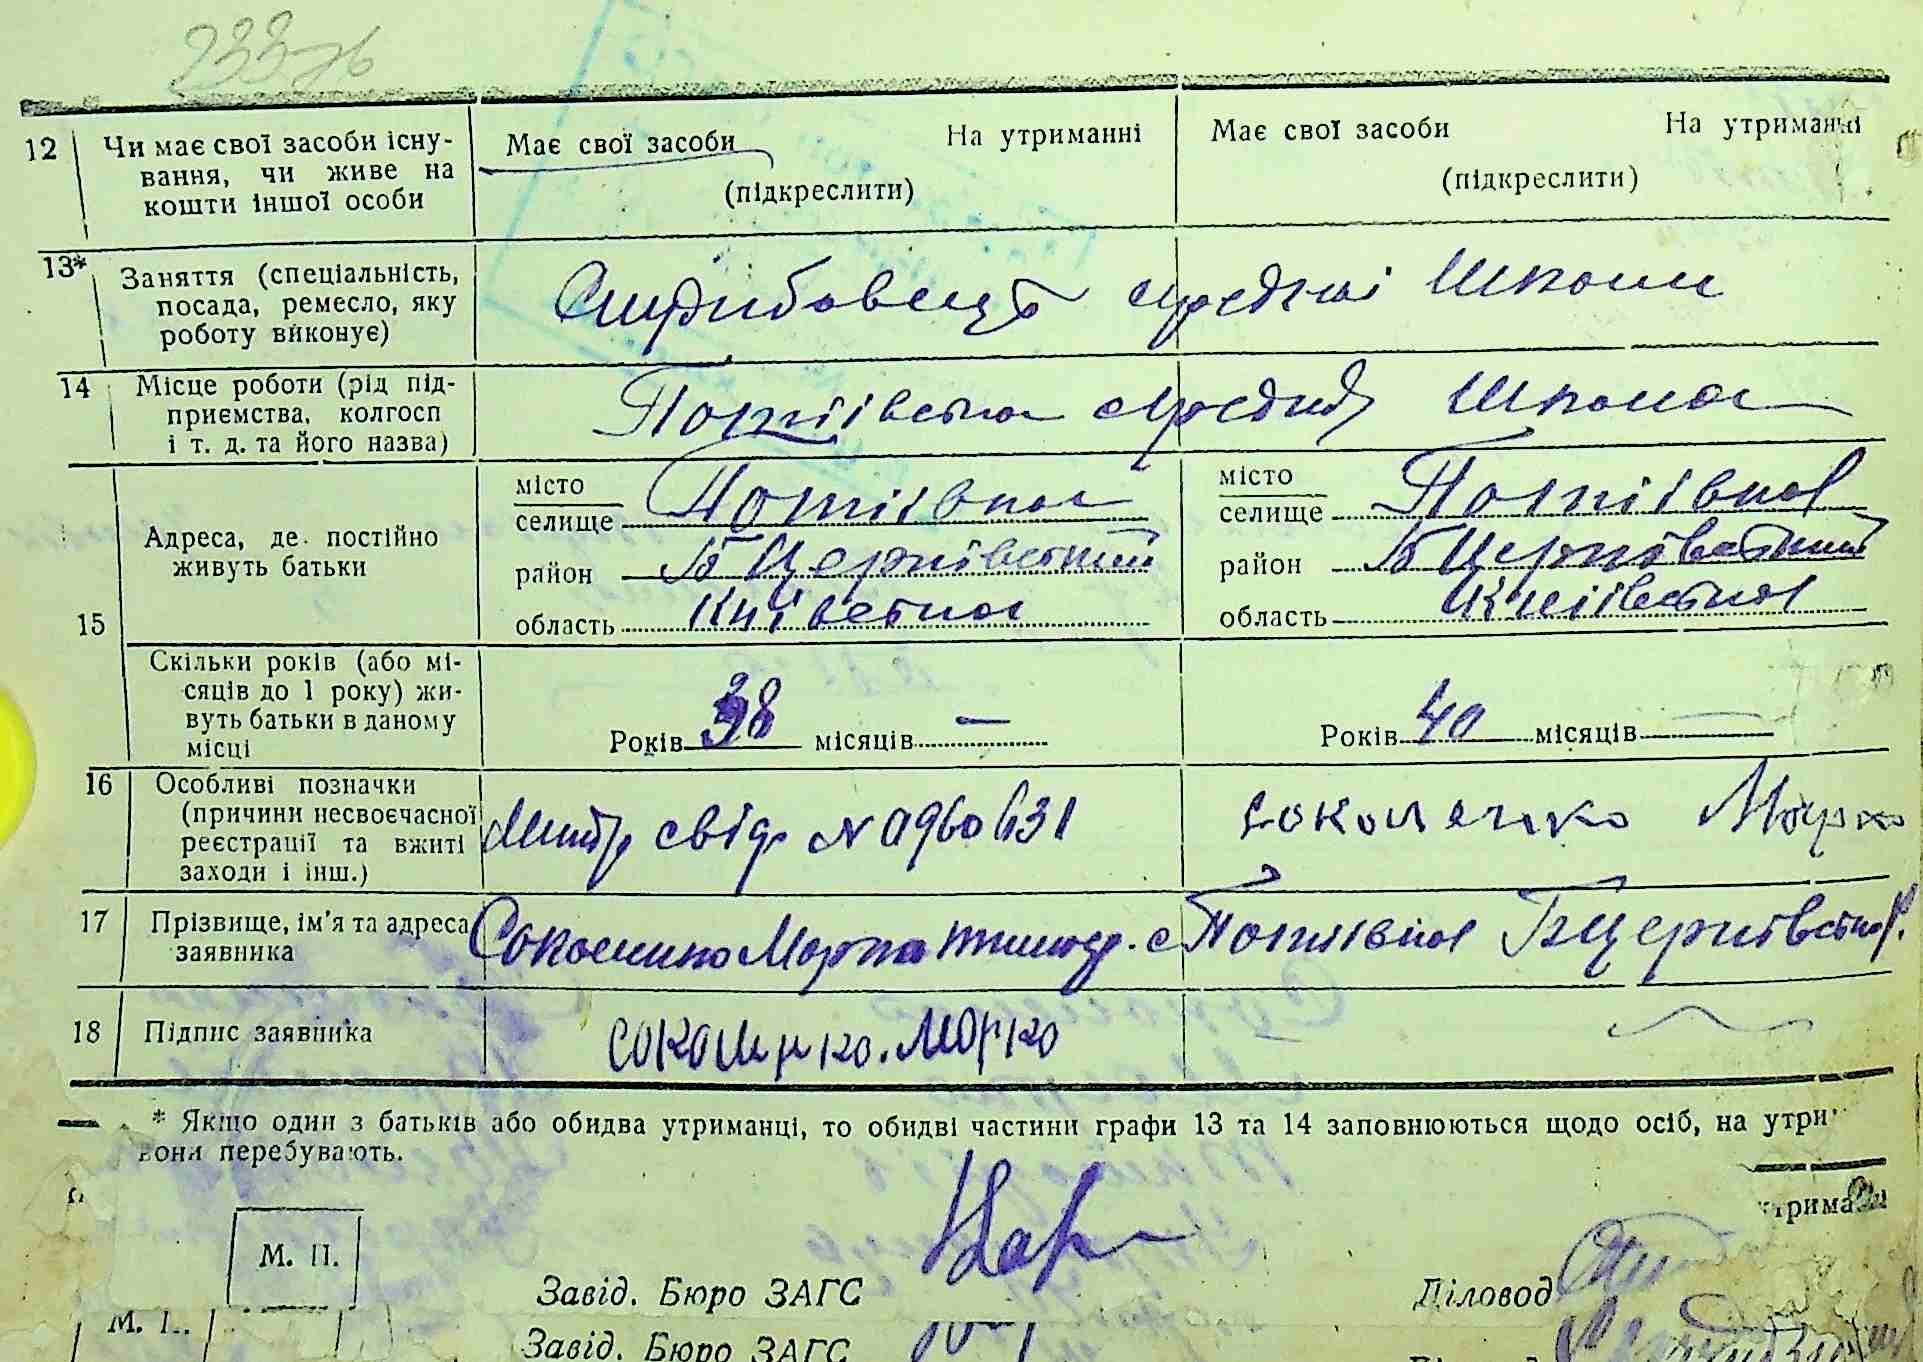 233
12 Чи має свої засоби існу-
вання, чи живе на
кошти іншої особи
Має свої засоби На утриманні
(підкреслити)
Має свої засоби На утриманні
(підкреслити)
13* Заняття (спеціальність,
посада, ремесло, яку
роботу виконує)
середні школи
14 Місце роботи (рід під-
приємства, колгосп
і т. д. та його назва)
Потіївська середня школа
15
Адреса, де постійно
живуть батьки
місто
селище Потіївка
район Б Церківський
область Київська
місто
селище Потіївка
район Б Церківський
область Київська
Скільки років (або мі-
сяців до 1 року) жи-
вуть батьки в даному
місці
Років 38 місяців —
Років 40 місяців —
16 Особливі позначки
(причини несвоєчасної
реєстрації та вжиті
заходи і інш.)
свід. N 0960631
Марко
17 Прізвище, ім'я та адреса
заявника
Марко с Потіївка БЦерківська
18 Підпис заявника
Марко
* Якщо один з батьків або обидва утриманці, то обидві частини графи 13 та 14 заповнюються щодо осіб, на утри
вони перебувають.
М. П.
Завід. Бюро ЗАГС
Діловод
М. П.
Завід. Бюро ЗАГС